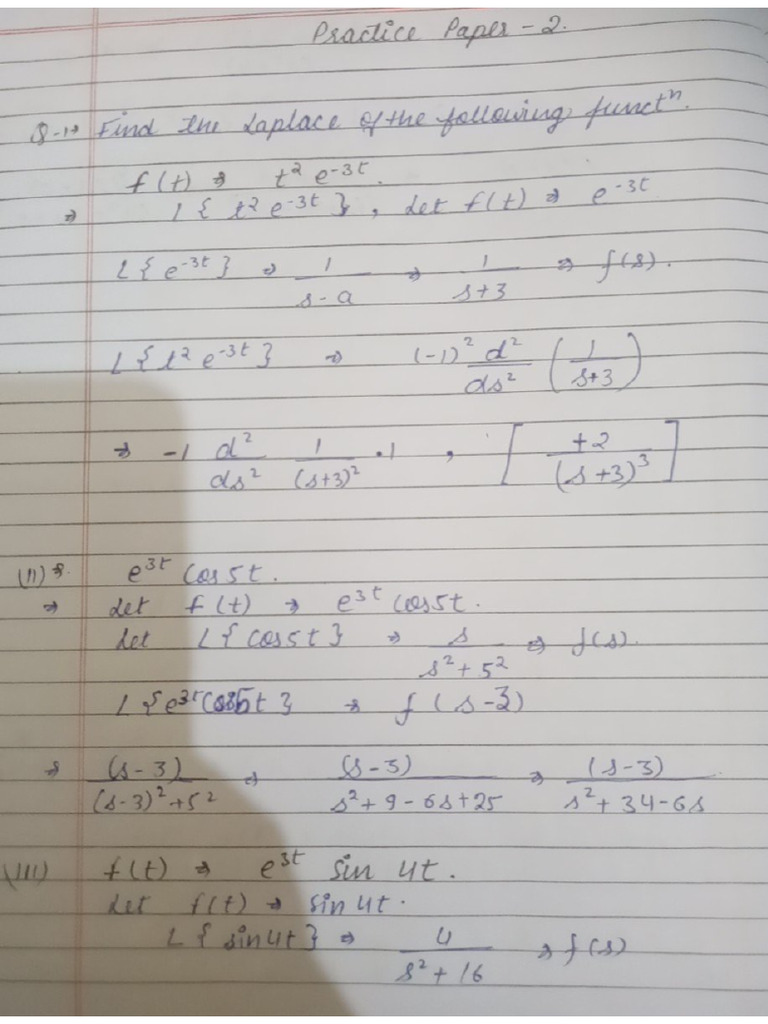 Practice Paper - 2.
Q-1→ Find the Laplace of the following functⁿ.
f(t) ⇒ t² e^-3t.
⇒ L{ t² e^-3t }, Let f(t) ⇒ e^-3t
L{ e^-3t } ⇒ 1/(s-a) ⇒ 1/(s+3) ⇒ f(s).
L{ t² e^-3t } ⇒ (-1)² d²/ds² (1/(s+3))
⇒ -1 d²/ds² 1/(s+3)² · 1 , [ +2/(s+3)³ ]
(II)⇒. e^3t Cos5t.
⇒ Let f(t) → e^3t cos5t.
Let L{ cos5t } → s/(s²+5²) ⇒ f(s).
L{ e^3t Cos5t } → f(s-3)
⇒ (s-3)/((s-3)²+5²) ⇒ (s-3)/(s²+9-6s+25) ⇒ (s-3)/(s²+34-6s)
(III) f(t) ⇒ e^3t sin 4t.
Let f(t) → sin 4t.
L{ sin4t } ⇒ 4/(s²+16) ⇒ f(s)